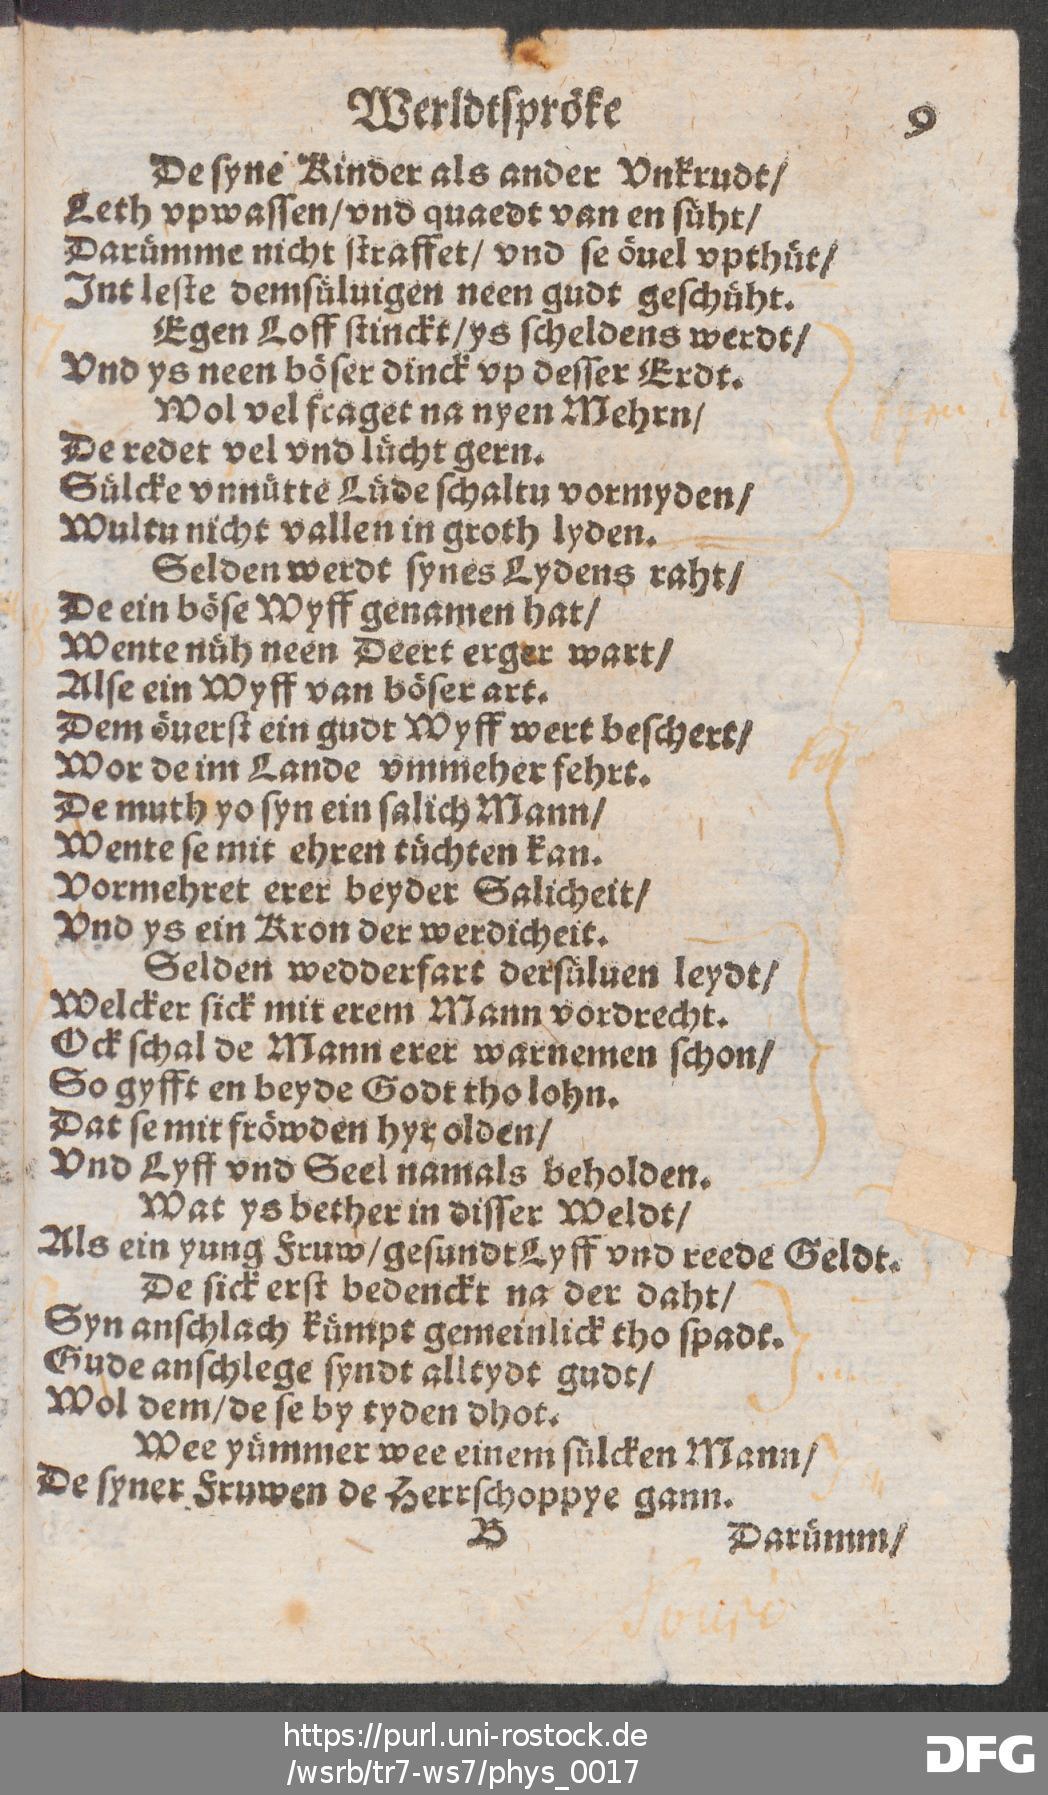 Werldtspröke
9
De syne Kinder als ander Vnkrudt/
Leth vpwassen/vnd quaedt van en süht/
Darümme nicht straffet/ vnd se öuel vpthüt/
Int leste demsüluigen neen gudt geschüht.
Egen Loff stinckt/ys scheldens werdt/
Vnd ys neen böser dinck vp desser Erdt.
Wol vel fraget na nyen Mehrn/
De redet vel vnd lücht gern.
Sülcke vnnütte Lüde schaltu vormyden/
Wultu nicht vallen in groth lyden.
Selden werdt synes Lydens raht/
De ein böse Wyff genamen hat/
Wente nüh neen Deert erger wart/
Alse ein Wyff van böser art.
Dem öuerst ein gudt Wyff wert beschert/
Wor de im Lande vmmeher fehrt.
De muth yo syn ein salich Mann/
Wente se mit ehren tüchten kan.
Vormehret erer beyder Salicheit/
Vnd ys ein Kron der werdicheit.
Selden wedderfart dersüluen leydt/
Welcker sick mit erem Mann vordrecht.
Ock schal de Mann erer warnemen schon/
So gyfft en beyde Godt tho lohn.
Dat se mit fröwden hyr olden/
Vnd Lyff vnd Seel namals beholden.
Wat ys bether in disser Weldt/
Als ein yung Fruw/gesundt Lyff vnd reede Geldt.
De sick erst bedenckt na der daht/
Syn anschlach kümpt gemeinlick tho spadt.
Gude anschlege syndt alltydt gudt/
Wol dem/de se by tyden dhot.
Wee yümmer wee einem sülcken Mann/
De syner Fruwen de Herrschoppye gann.
B
Darümm/
https://purl.uni-rostock.de
/wsrb/tr7-ws7/phys_0017
DFG